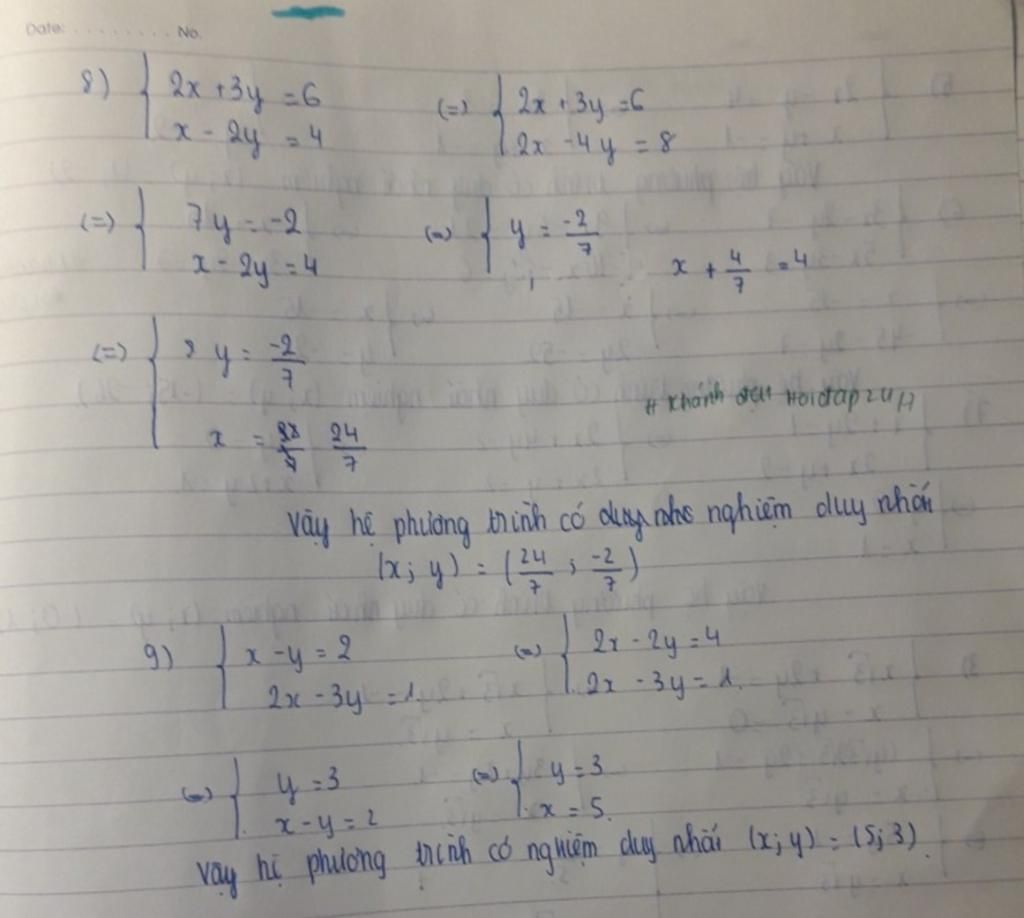 Date: ........ No.
8) { 2x + 3y = 6 (=) { 2x + 3y = 6
x - 2y = 4 2x - 4y = 8
(=) { 7y = -2 (=) { y = -2/7
x - 2y = 4 x + 4/7 = 4
(=) { y = -2/7
x = 24/7
# Khánh đen Hoidap247
Vậy hệ phương trình có nghiệm duy nhất
(x; y) = (24/7 ; -2/7)
9) { x - y = 2 (=) { 2x - 2y = 4
2x - 3y = 1. 2x - 3y = 1.
(=) { y = 3 (=) { y = 3
x - y = 2 x = 5.
Vậy hệ phương trình có nghiệm duy nhất (x; y) = (5; 3).